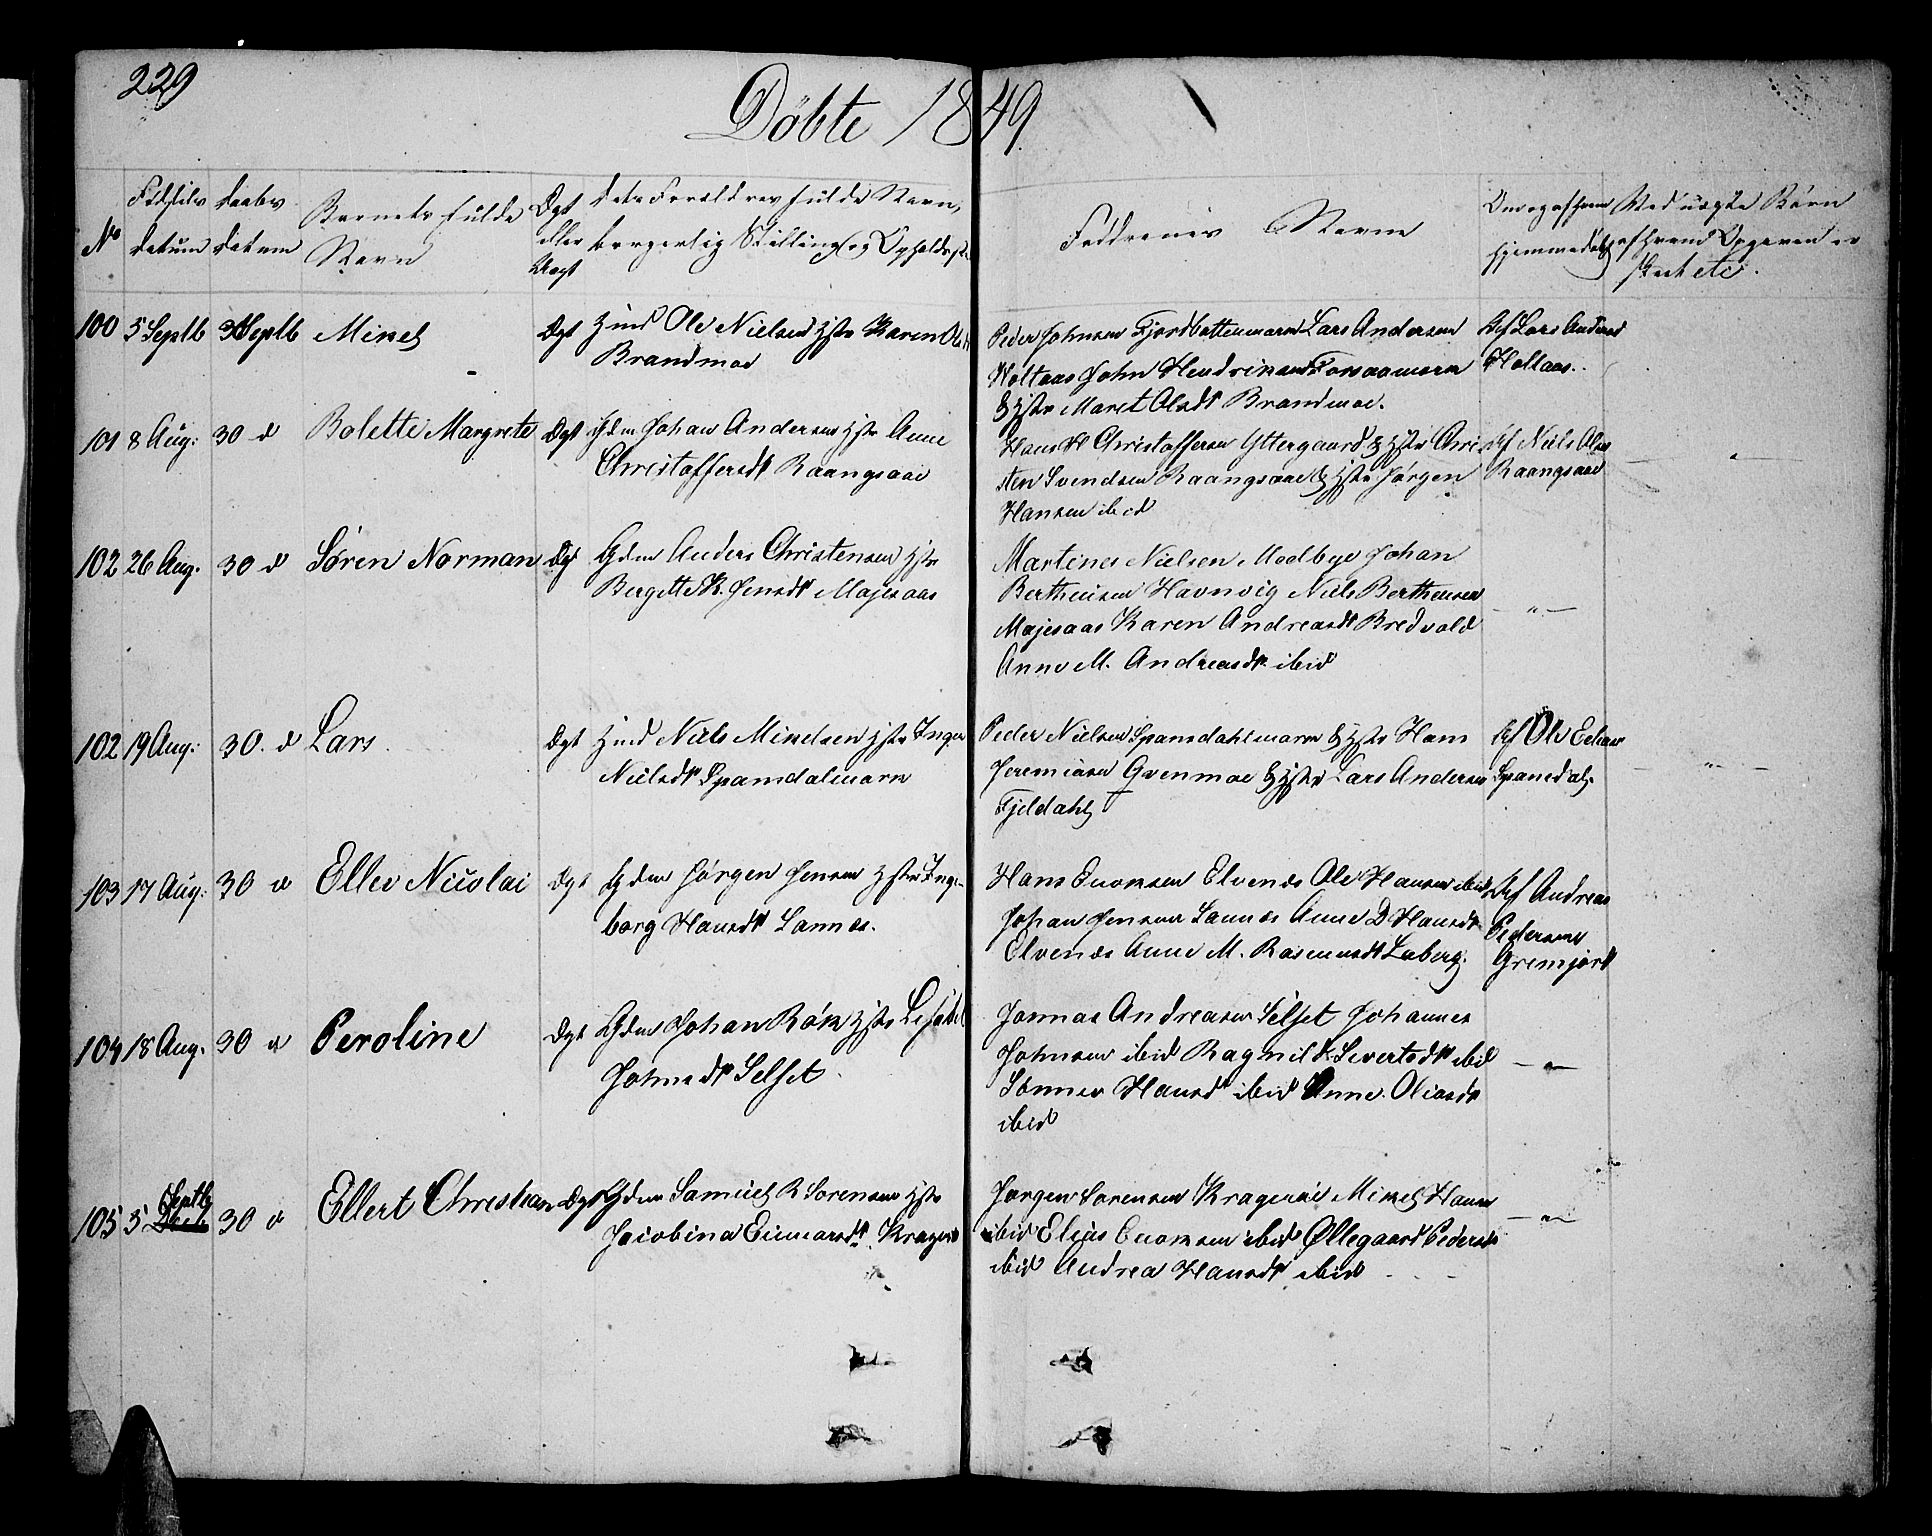 229
Döbte 1849
No
Fødsels
datum
Daabs
datum
Barnets fulde
Navn
Ægt
eller
Uægt
Forældres fulde Navn,
borgerlig Stilling og
Faddrenes Navne
Ved uægte Börn
100 5 Septb 30 Septb Mikel Ægt Ind Ole Nielsen Hstr Karen
Brandmoe
Peder Johnsen Fjordbottenmarn Lars Andersen
Holtaas John Hendriksen
& Hstr Maret Olsdr Brandmoe.
Af Lars Anders
Holtaas.
101 8 Aug: 30 d Bolette Margrete Ægt Gdm Johan Andersen Hstr Anne
Christoffersdr Raangsaae
Hans H Christoffersen Yttergaard & Hstr Chris
ten Svendsen Raangsaae & Hstr Jörgen
Hansen ibid
Af Niels Olsen
Raangsaae
— " —
102 26 Aug. 30 d Sören Norman Ægt Gdm Anders Christensen Hstr
Bergitte K. Jensdr Majesaas
Martines Nielsen Moelbye Johan
Bertheusen Havnvig Niels Bertheusen
Majesaas Karen Andreasdr Bredvold
Anne M. Andreasdr ibid
— " —
102 19 Aug: 30. d Lars Ægt Ind Niels Mikelsen Hstr Inger
Nielsdr Spansdalmarn
Peder Nielsen Spansdahlmarn & Hstr Hans
Jeremiasen Qvenmoe & Hstr Lars Andersen
Fjeldahl
Af Ole
Spansdal.
— " —
103 17 Aug: 30 d Ellev Nicolai Ægt Gdm Jörgen Jensen Hstr Inge
borg Hansdr Sannes.
Hans Enoksen Elvenes Ole Hansen ibid
Johan Jensen Sannes Anne D Hansdr
Elvenes Anne M. Rasmusdr Luberg.
Af Andreas
Pedersen
Gremjord
104 18 Aug. 30 d Peroline Ægt Gdm Johan Rök Hstr
Johnsdr Selset.
Jonnas Andreasen Selset Johannes
Johnsen ibid Ragnild Sivertsdr ibid
Hansdr ibid Anne Oliasdr
ibid
— " —
Septb
105 5 30 d Ellert Christian Ægt Gdm Samuel R Sorensen Hstr
Jacobina Einnarsdr. Krager
Jorgen Sorensen Krageröe Mikel Hansen
ibid Elias Enoksen ibid Øllegaard Pedersdr
ibid Andrea Hansdr ibid
— " —